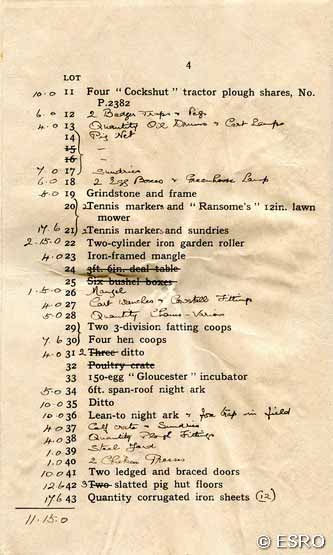 4
LOT
10.0 11 Four "Cockshut" tractor plough shares, No.
P.2382
6.0 12 2 Badger Traps & Pegs
4.0 13 Quantity Oil Drums & Cart Lamps
14 Pig Net
15 -
16 -
7.0 17 Sundries
6.0 18 2 Egg Boxes & Greenhouse Lamp
8.0 19 Grindstone and frame
20 2 Tennis markers and "Ransome's" 12in. lawn
mower
17.6 21 2 Tennis markers and sundries
2-15.0 22 Two-cylinder iron garden roller
4.0 23 Iron-framed mangle
24 3ft. 6in. deal table
25 Six bushel boxes
1.5.0 26 Mangel
4.0 27 Cart & Fittings
5.0 28 Quantity Chains - Various
29 Two 3-division fatting coops
7.6 30 Four hen coops
4.0 31 2 Three ditto
32 Poultry crate
33 150-egg "Gloucester" incubator
5.0 34 6ft. span-roof night ark
10.0 35 Ditto
10.0 36 Lean-to night ark & fox trap in field
4.0 37 Calf crate & Sundries
4.0 38 Quantity Plough Fittings
1.0 39 Steel Yard
1.0 40 2
10.0 41 Two ledged and braced doors
12.6 42 3 Two slatted pig hut floors
17.6 43 Quantity corrugated iron sheets (12)
11.15.0
© ESRO